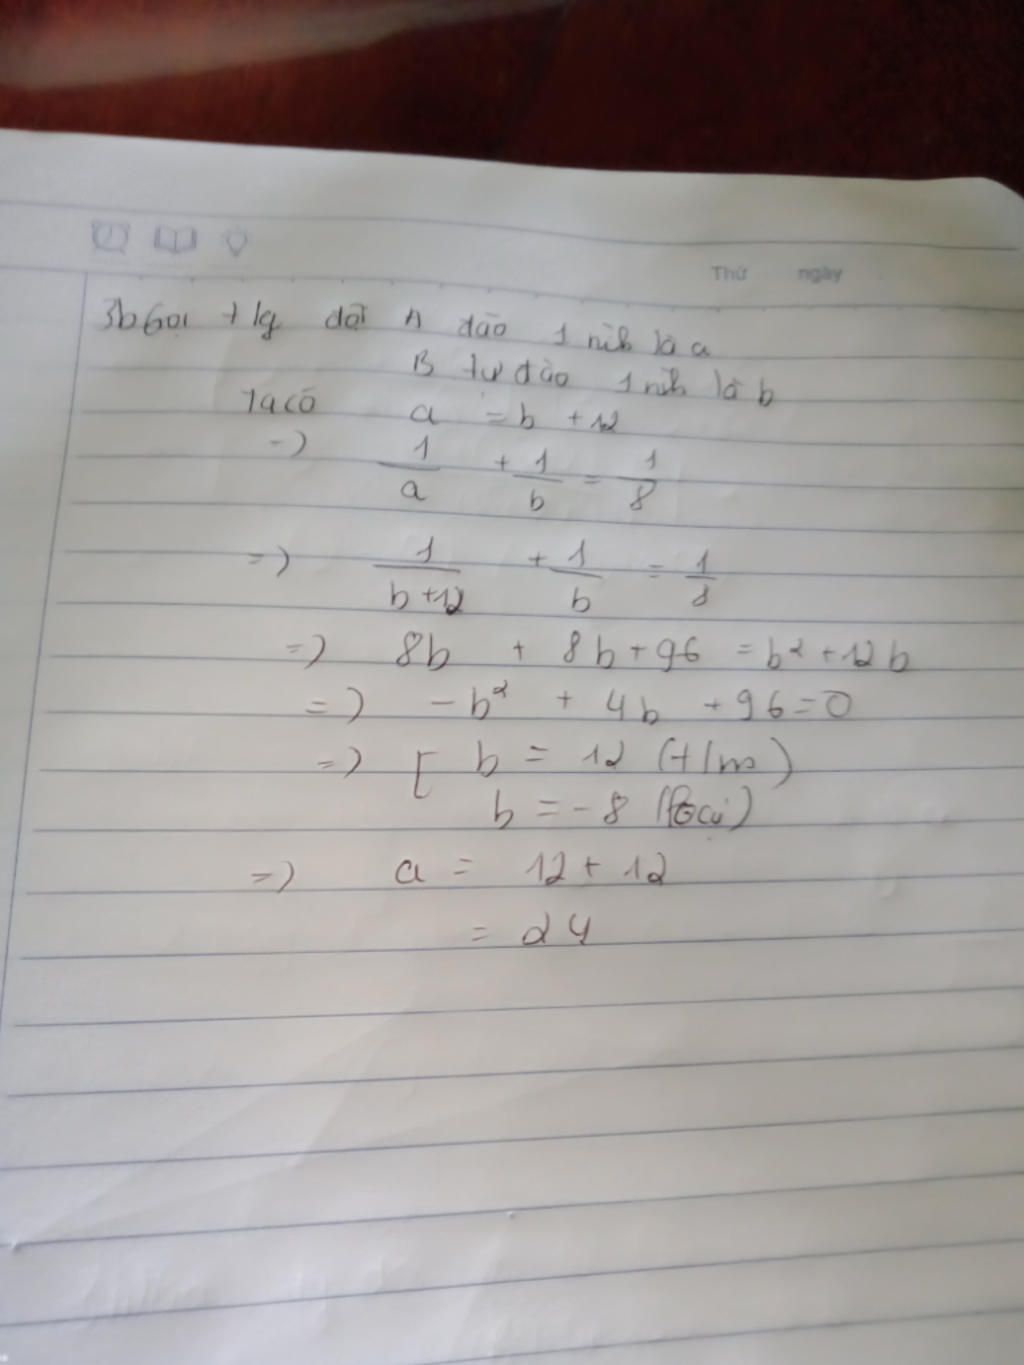 Thứ ngày
3b Gọi t/g đội A đào 1 mình là a
B tự đào 1 mình là b
Ta có a = b + 12
=) 1/a + 1/b = 1/8
=) 1/(b+12) + 1/b = 1/8
=) 8b + 8b + 96 = b² + 12b
=) -b² + 4b + 96 = 0
=) [ b = 12 (t/m)
b = -8 (loại)
=) a = 12 + 12
= 24